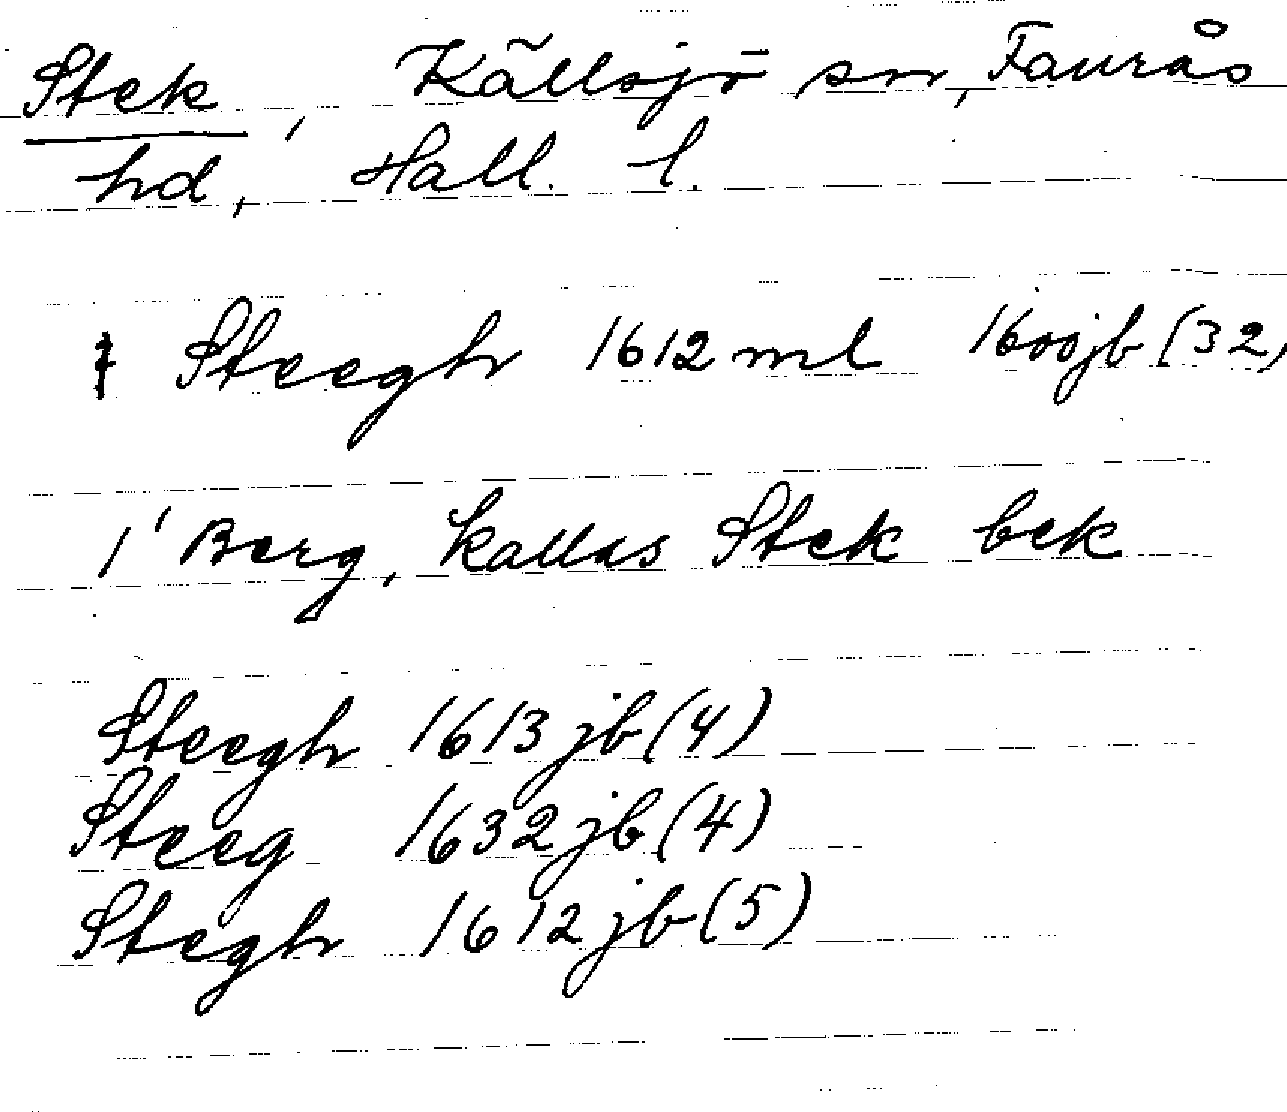 Stek, Källsjö sn, Faurås
hd, Hall. l.
‡ Steegh 1612 ml 1600jb (32,
1' Berg, kallas Stek bek
Steegh 1613 jb (4)
Steeg 1632 jb (4)
Stegh 1612 jb (5)